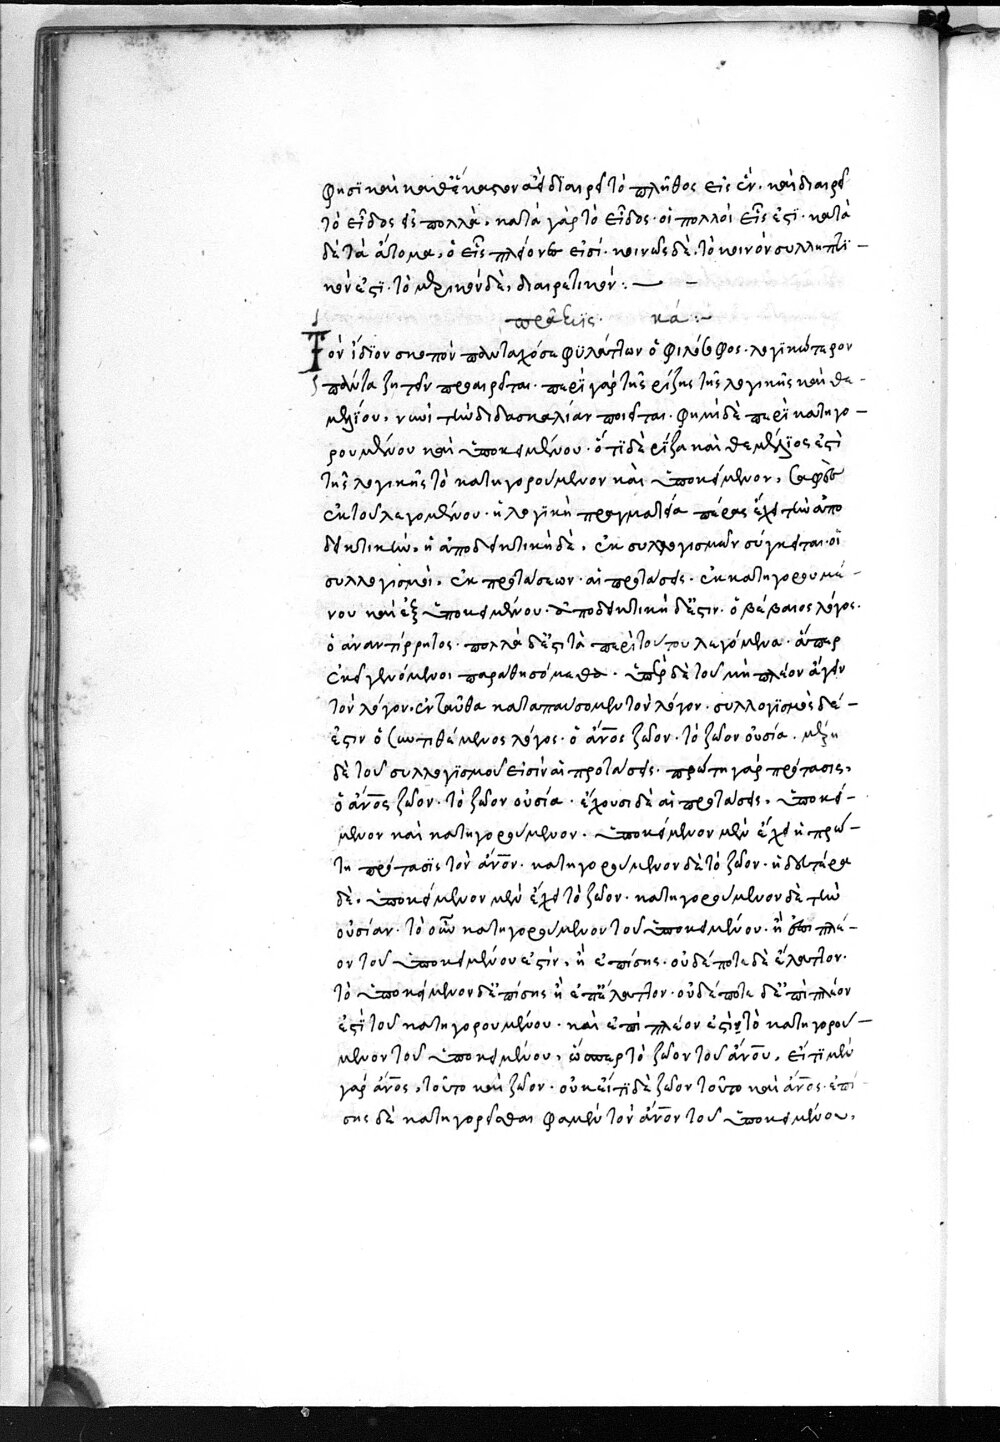 φησὶ καὶ καθ' ἕκαστον ἀεὶ διαιρεῖ τὸ πλῆθος εἰς ἕν. καὶ διαιρεῖ
τὸ εἶδος εἰς πολλὰ. κατὰ γὰρ τὸ εἶδος· οἱ πολλοὶ εἷς ἐστι· κατὰ
δὲ τὰ ἄτομα, ὁ εἷς πλείονες εἰσί· κοινῶς δὲ, τὸ κοινὸν συλληπτι –
κόν ἐστι· τὸ μερικὸν δὲ, διαιρετικόν : —
πρᾶξις κά :–
Τὸν ἴδϊον σκοπὸν πανταχόσε φϋλάττων ὁ φιλόσοφος· λογικώτερον
πάντα ζητεῖν προαιρεῖται· περὶ γὰρ τῆς ῥίζης τῆς λογικῆς καὶ θε –
μελίου, νυνὶ τὴν διδασκαλίαν ποιεῖται· φημὶ δὲ περὶ κατηγο –
ρουμένου καὶ ὑποκειμένου· ὅτι δὲ ῥίζα καὶ θεμέλϊος ἐστὶ
τῆς λογικῆς τὸ κατηγορούμενον καὶ ὑποκείμενον, σαφὲς
ἐκ τοῦ λεγομένου· ἡ λογϊκὴ πραγματεία πέρας ἔχει τὴν ἀπο
δεικτικὴν, ἡ ἀποδεικτικὴ δὲ, ἐκ συλλογισμῶν σύγκειται· οἱ
συλλογισμοὶ, ἐκ προτάσεων· αἱ προτάσεις, ἐκ κατηγορουμέ –
νου καὶ ἐξ ὑποκειμένου· ἀποδεικτικὴ δέ ἐστιν· ὁ βέβαιος λόγος·
ὁ ἀναντίρρητος· πολλὰ δέ ἐστι τὰ περὶ τούτου λεγόμενα· ἅπερ
ἐκεῖ γενόμενοι παραθησόμεθα· ὑπὲρ δὲ τοῦ μὴ πλέον ἄγειν
τὸν λόγον, ἐνταῦθα καταπαύσομεν τὸν λόγον· συλλογϊσμὸς δέ –
ἐστιν ὁ συντιθέμενος λόγος· ὁ ἄνος ζῶον· τὸ ζῶον οὐσία. μέρη
δὲ τοῦ συλλογϊσμοῦ εἰσὶν αἱ προτάσεις· πρώτη γὰρ πρότασις,
ὁ ἄνος ζῶον· τὸ ζῶον οὐσία· ἔχουσι δὲ αἱ προτάσεις, ὑποκεί –
μενον καὶ κατηγορούμενον. ὑποκείμενον μὲν ἔχει ἡ πρώ –
τη πρότασϊς τὸν ἄνον· κατηγορούμενον δὲ τὸ ζῶον· ἡ δευτέρα
δὲ. ὑποκείμενον μὲν ἔχει τὸ ζῶον· κατηγορούμενον δὲ τὴν
οὐσίαν· τὸ οὖν κατηγορούμενον τοῦ ὑποκειμένου· ἢ ἐπὶ πλέ –
ον τοῦ ὑποκειμένου ἐστὶν, ἢ ἐπίσης· οὐδέποτε δὲ ἔλαττον·
τὸ ὑποκείμενον δὲ ἐπίσης ἢ ἐπ' ἔλαττον· οὐδέποτε δὲ ἐπιπλέον
ἐστὶ τοῦ κατηγορουμένου· καὶ ἐπὶ πλέον ἐστὶ τὸ κατηγορού –
μενον τοῦ ὑποκειμένου, ὥσπερ τὸ ζῶον τοῦ ἄνου, εἴ τι μὲν
γὰρ ἄνος, τοῦτο καὶ ζῶον· οὐκ εἴ τϊ δὲ ζῶον τοῦτο καὶ ἄνος· ἐπί –
σης δὲ κατηγορεῖσθαι φαμὲν τὸν ἄνον τοῦ ὑποκειμένου,